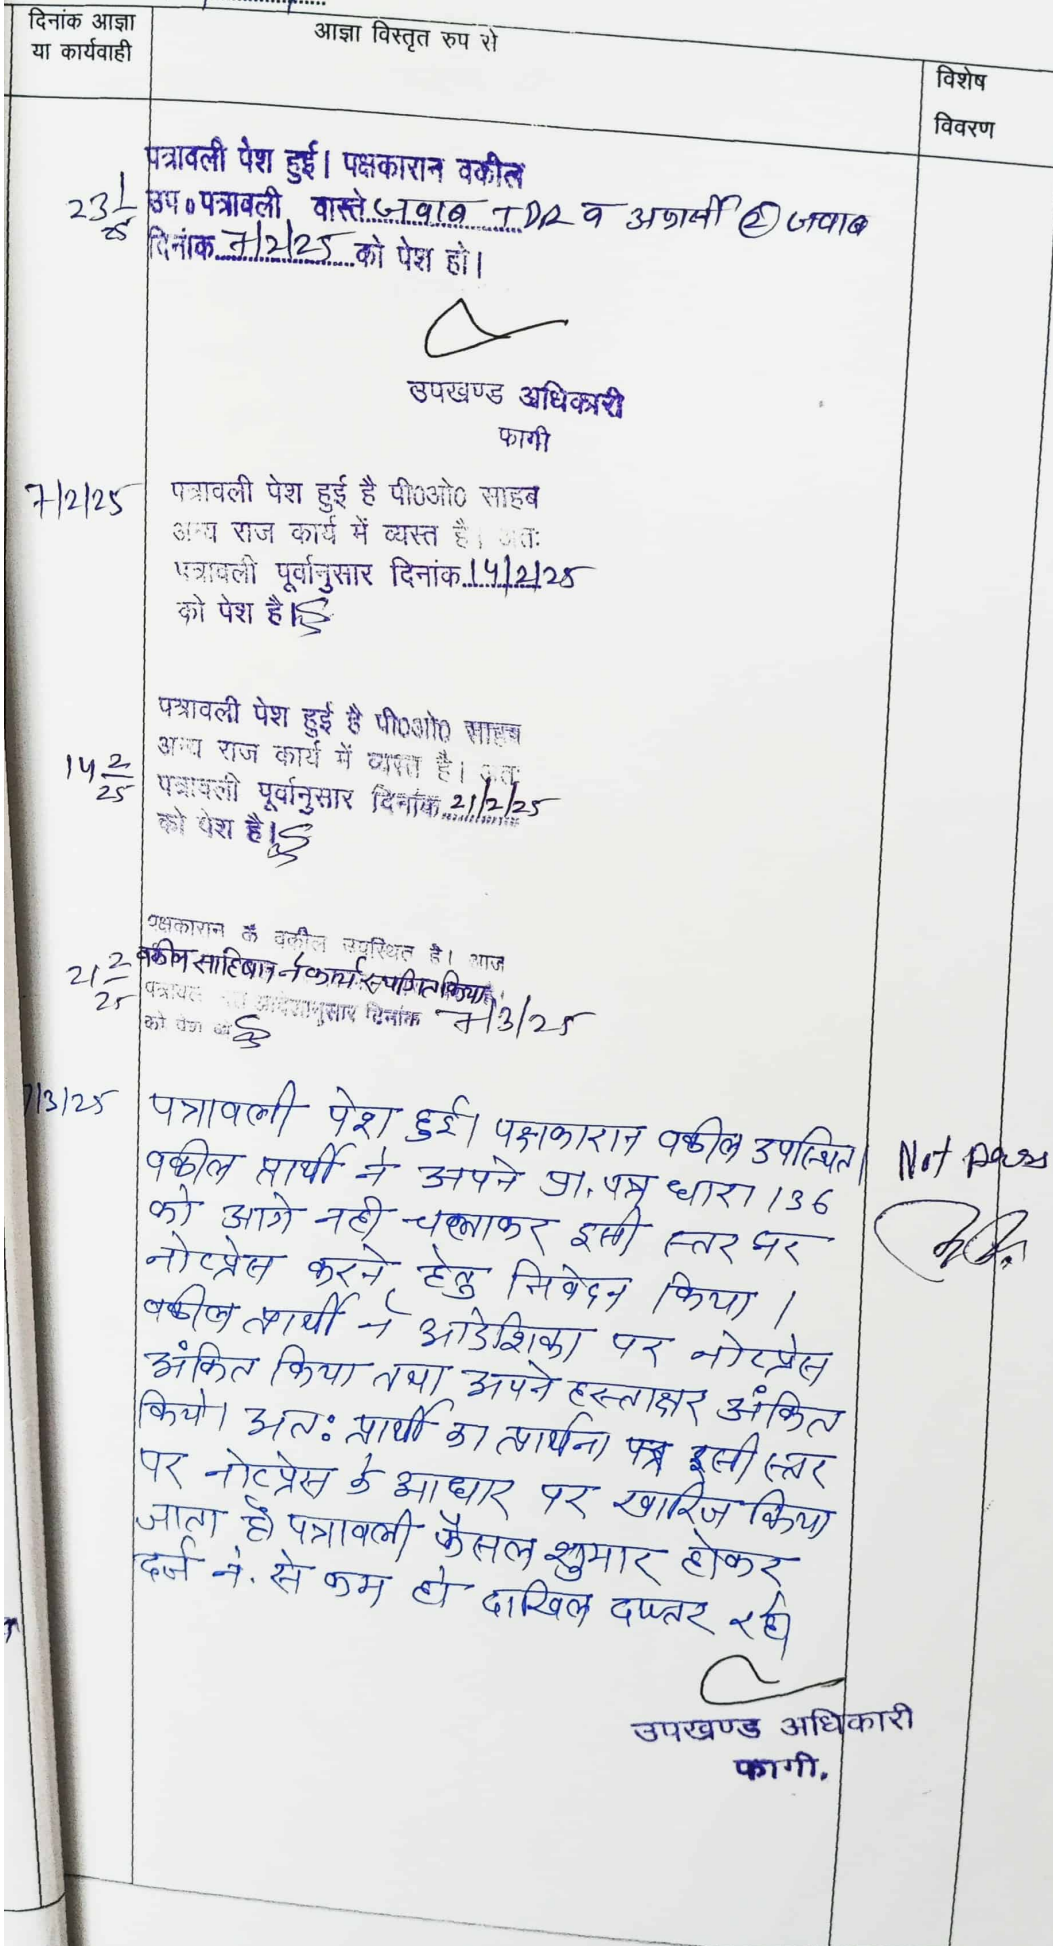 दिनांक आज्ञा
या कार्यवाही
आज्ञा विस्तृत रुप से
विशेष
विवरण
पत्रावली पेश हुई। पक्षकारान वकील
23/1/25
उप० पत्रावली वास्ते जवाब TDR व अप्रार्थी ② जवाब
दिनांक 7/2/25 को पेश हो।
उपखण्ड अधिकारी
फागी
7/2/25
पत्रावली पेश हुई है पी0ओ0 साहब
अन्य राज कार्य में व्यस्त है। अतः
पत्रावली पूर्वानुसार दिनांक 14/2/25
को पेश है।
पत्रावली पेश हुई है पी0ओ0 साहब
अन्य राज कार्य में व्यस्त है। अतः
14/2/25
पत्रावली पूर्वानुसार दिनांक 21/2/25
को पेश है।
पक्षकारान के वकील उपस्थित है। आज
21/2/25
वकील साहिबान ने कार्य स्थगित किया
आदेशानुसार दिनांक 7/3/25
को पेश
7/3/25
पत्रावली पेश हुई। पक्षकारान वकील उपस्थित।
वकील प्रार्थी ने अपने प्रा. पत्र धारा 136
को आगे नही चलाकर इसी स्तर पर
नोटप्रेस करने हेतु निवेदन किया।
वकील प्रार्थी ने आदेशिका पर नोटप्रेस
अंकित किया तथा अपने हस्ताक्षर अंकित
किये। अतः प्रार्थी का प्रार्थना पत्र इसी स्तर
पर नोटप्रेस के आधार पर खारिज किया
जाता है। पत्रावली फैसल शुमार होकर
दर्ज नं. से कम हो दाखिल दफ्तर रहे
Not press
उपखण्ड अधिकारी
फागी.